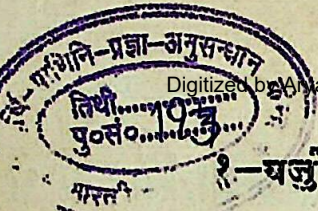 पाणिनि-प्रज्ञा-अनुसन्धान
Digitized by Arya
तिथी..........
पु०सं०...........
१-यजु